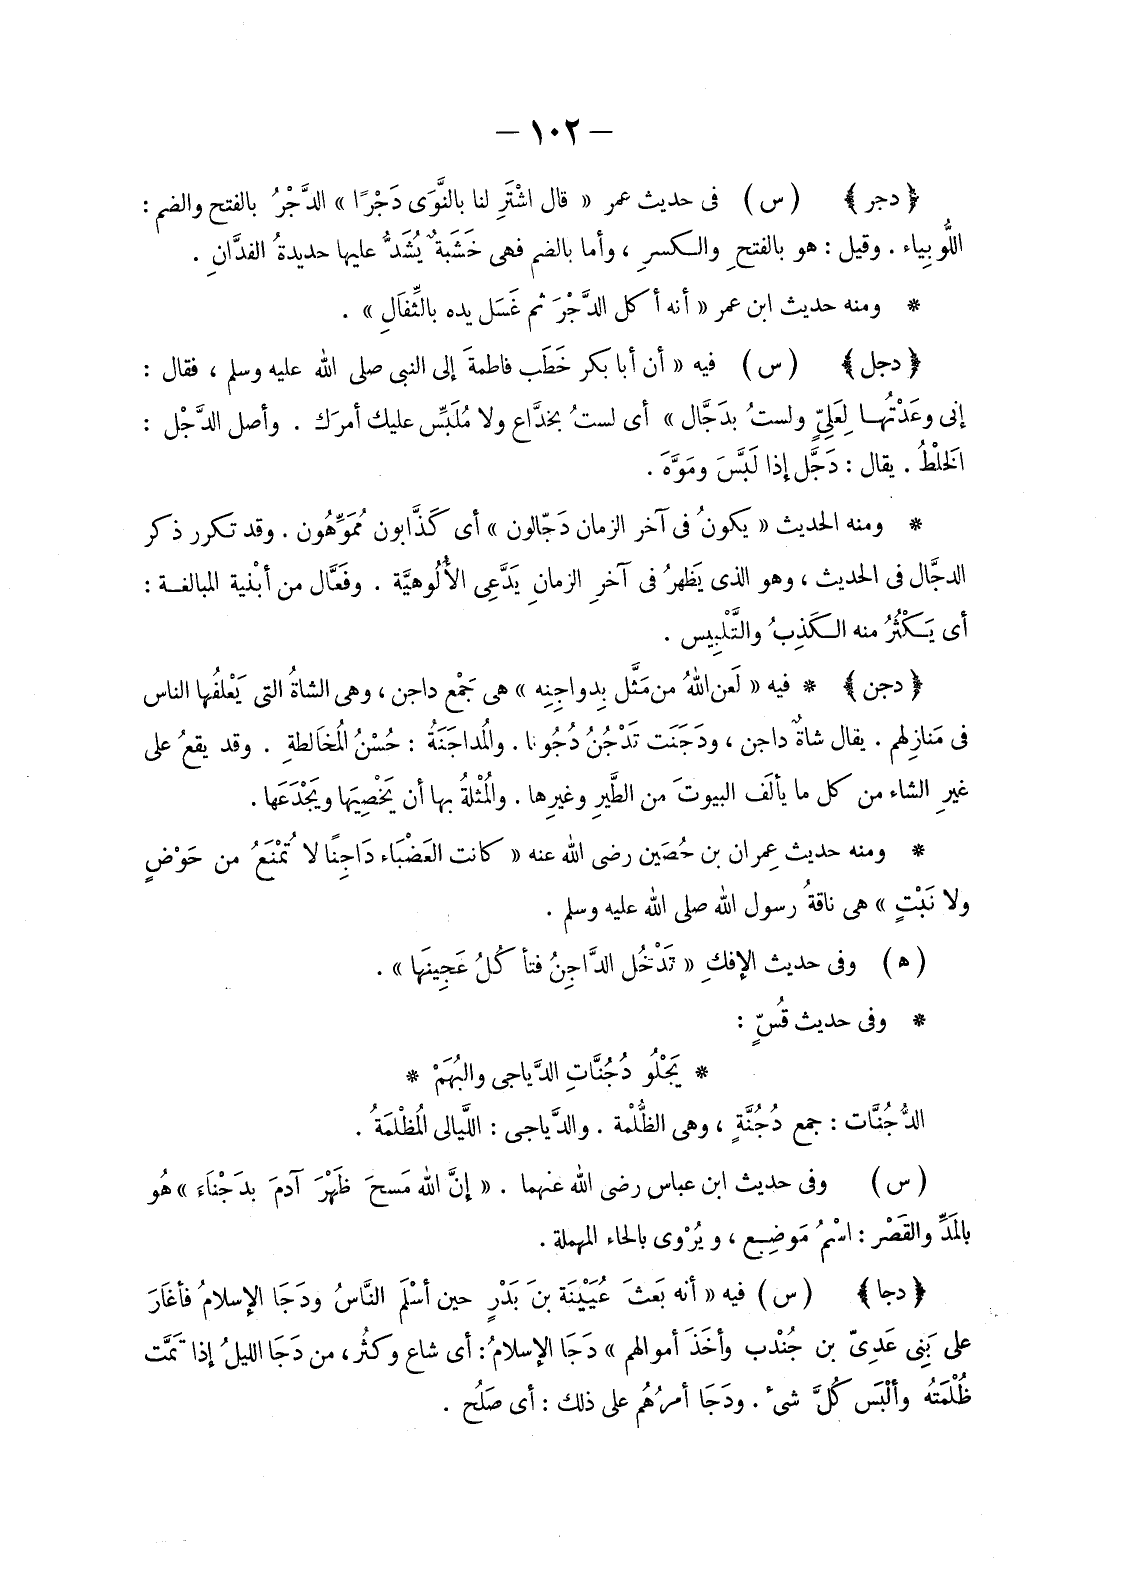 — ١٠٢ —
﴿ دجر ﴾ ( س ) فى حديث عمر « قال اشْتَرِ لنا بالنَّوَى دَجْرًا » الدَّجْرُ بالفتح والضم :
اللُّوبِياء . وقيل : هو بالفتحِ والكسرِ ، وأما بالضم فهى خَشَبةٌ يُشَدُّ عليها حديدةُ الفدَّانِ .
* ومنه حديث ابن عمر « أنه أكل الدَّجْرَ ثم غَسَل يده بالثِّفَالِ » .
﴿ دجل ﴾ ( س ) فيه « أن أبا بكر خَطَب فاطمةَ إلى النبى صلى الله عليه وسلم ، فقال :
إنى وعَدْتُها لِعَلِيٍّ ولستُ بدَجَّال » أى لستُ بخدَّاع ولا مُلَبِّس عليك أمرَك . وأصل الدَّجْل :
الخَلْطُ . يقال : دَجَّل إذا لَبَّسَ ومَوَّهَ .
* ومنه الحديث « يكونُ فى آخر الزمان دَجّالون » أى كَذَّابون مُمَوِّهُون . وقد تكرر ذكر
الدجَّال فى الحديث ، وهو الذى يَظهرُ فى آخرِ الزمانِ يَدَّعِى الأُلُوهيَّة . وفَعَّال من أبْنية المبالغة :
أى يَكْثُرُ منه الكَذِبُ والتَّلْبِيس .
﴿ دجن ﴾ * فيه « لَعن اللهُ من مَثَّل بِدواجِنِه » هى جَمْع داجن ، وهى الشاةُ التى يَعْلفُها الناس
فى مَنازِلهم . يقال شاةٌ داجن ، ودَجَنَت تَدْجُنُ دُجُونا . والمُداجَنَةُ : حُسْنُ المُخَالطةِ . وقد يقعُ على
غيرِ الشاء من كل ما يألَف البيوتَ من الطَّيرِ وغيرِها . والمُثْلةُ بها أن يَخْصِيَها ويَجْدَعَها .
* ومنه حديث عِمران بن حُصَين رضى الله عنه « كانت العَضْبَاء دَاجِنًا لا تُمْنَعُ من حَوْضٍ
ولا نَبْتٍ » هى ناقةُ رسول الله صلى الله عليه وسلم .
( ه ) وفى حديث الإفكِ « تَدْخُل الدَّاجِنُ فتأكُلُ عَجِينَها » .
* وفى حديث قُسٍّ :
* يَجْلُو دُجُنَّاتِ الدَّياجى والبُهَمْ *
الدُّجُنَّات : جمع دُجُنَّةٍ ، وهى الظُّلْمة . والدَّياجى : اللَّيالى المُظْلمَةُ .
( س ) وفى حديث ابن عباس رضى الله عنهما . « إنَّ الله مَسحَ ظَهْرَ آدمَ بدَجْنَاءَ » هُو
بالمَدِّ والقَصْر : اسْمُ مَوضِع ، ويُرْوى بالحاء المهملة .
﴿ دجا ﴾ ( س ) فيه « أنه بَعثَ عُيَيْنَة بنَ بَدْرٍ حين أسْلَم النَّاسُ ودَجَا الإسلامُ فأغَارَ
على بَنِى عَدِىّ بن جُنْدب وأخَذَ أموالهم » دَجَا الإسلامُ : أى شاع وكثُر ، من دَجَا الليلُ إذا تَمَّت
ظُلْمَتُه وألْبَس كُلَّ شىء . ودَجَا أمرُهُم على ذلك : أى صَلُح .